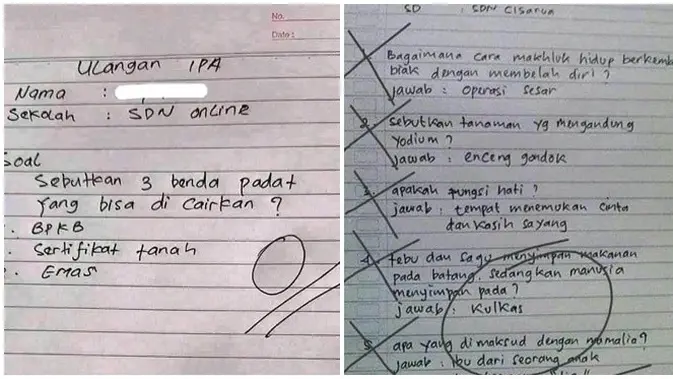 No.
Date:
Ulangan IPA
Nama :
Sekolah : SDN online
Soal
Sebutkan 3 benda padat
yang bisa di cairkan ?
BPKB
Sertifikat tanah
Emas
SD : SDN Cisarua
Bagaimana cara makhluk hidup berkemb
biak dengan membelah diri ?
jawab : operasi sesar
2. sebutkan tanaman yg mengandung
yodium ?
jawab : enceng gondok
3. apakah fungsi hati ?
jawab : tempat menemukan cinta
dan kasih sayang
4. tebu dan sagu menyimpan makanan
pada batang. sedangkan manusia
menyimpan pada ?
jawab : kulkas
5. apa yang dimaksud dengan mamalia ?
jawab : ibu dari seorang anak